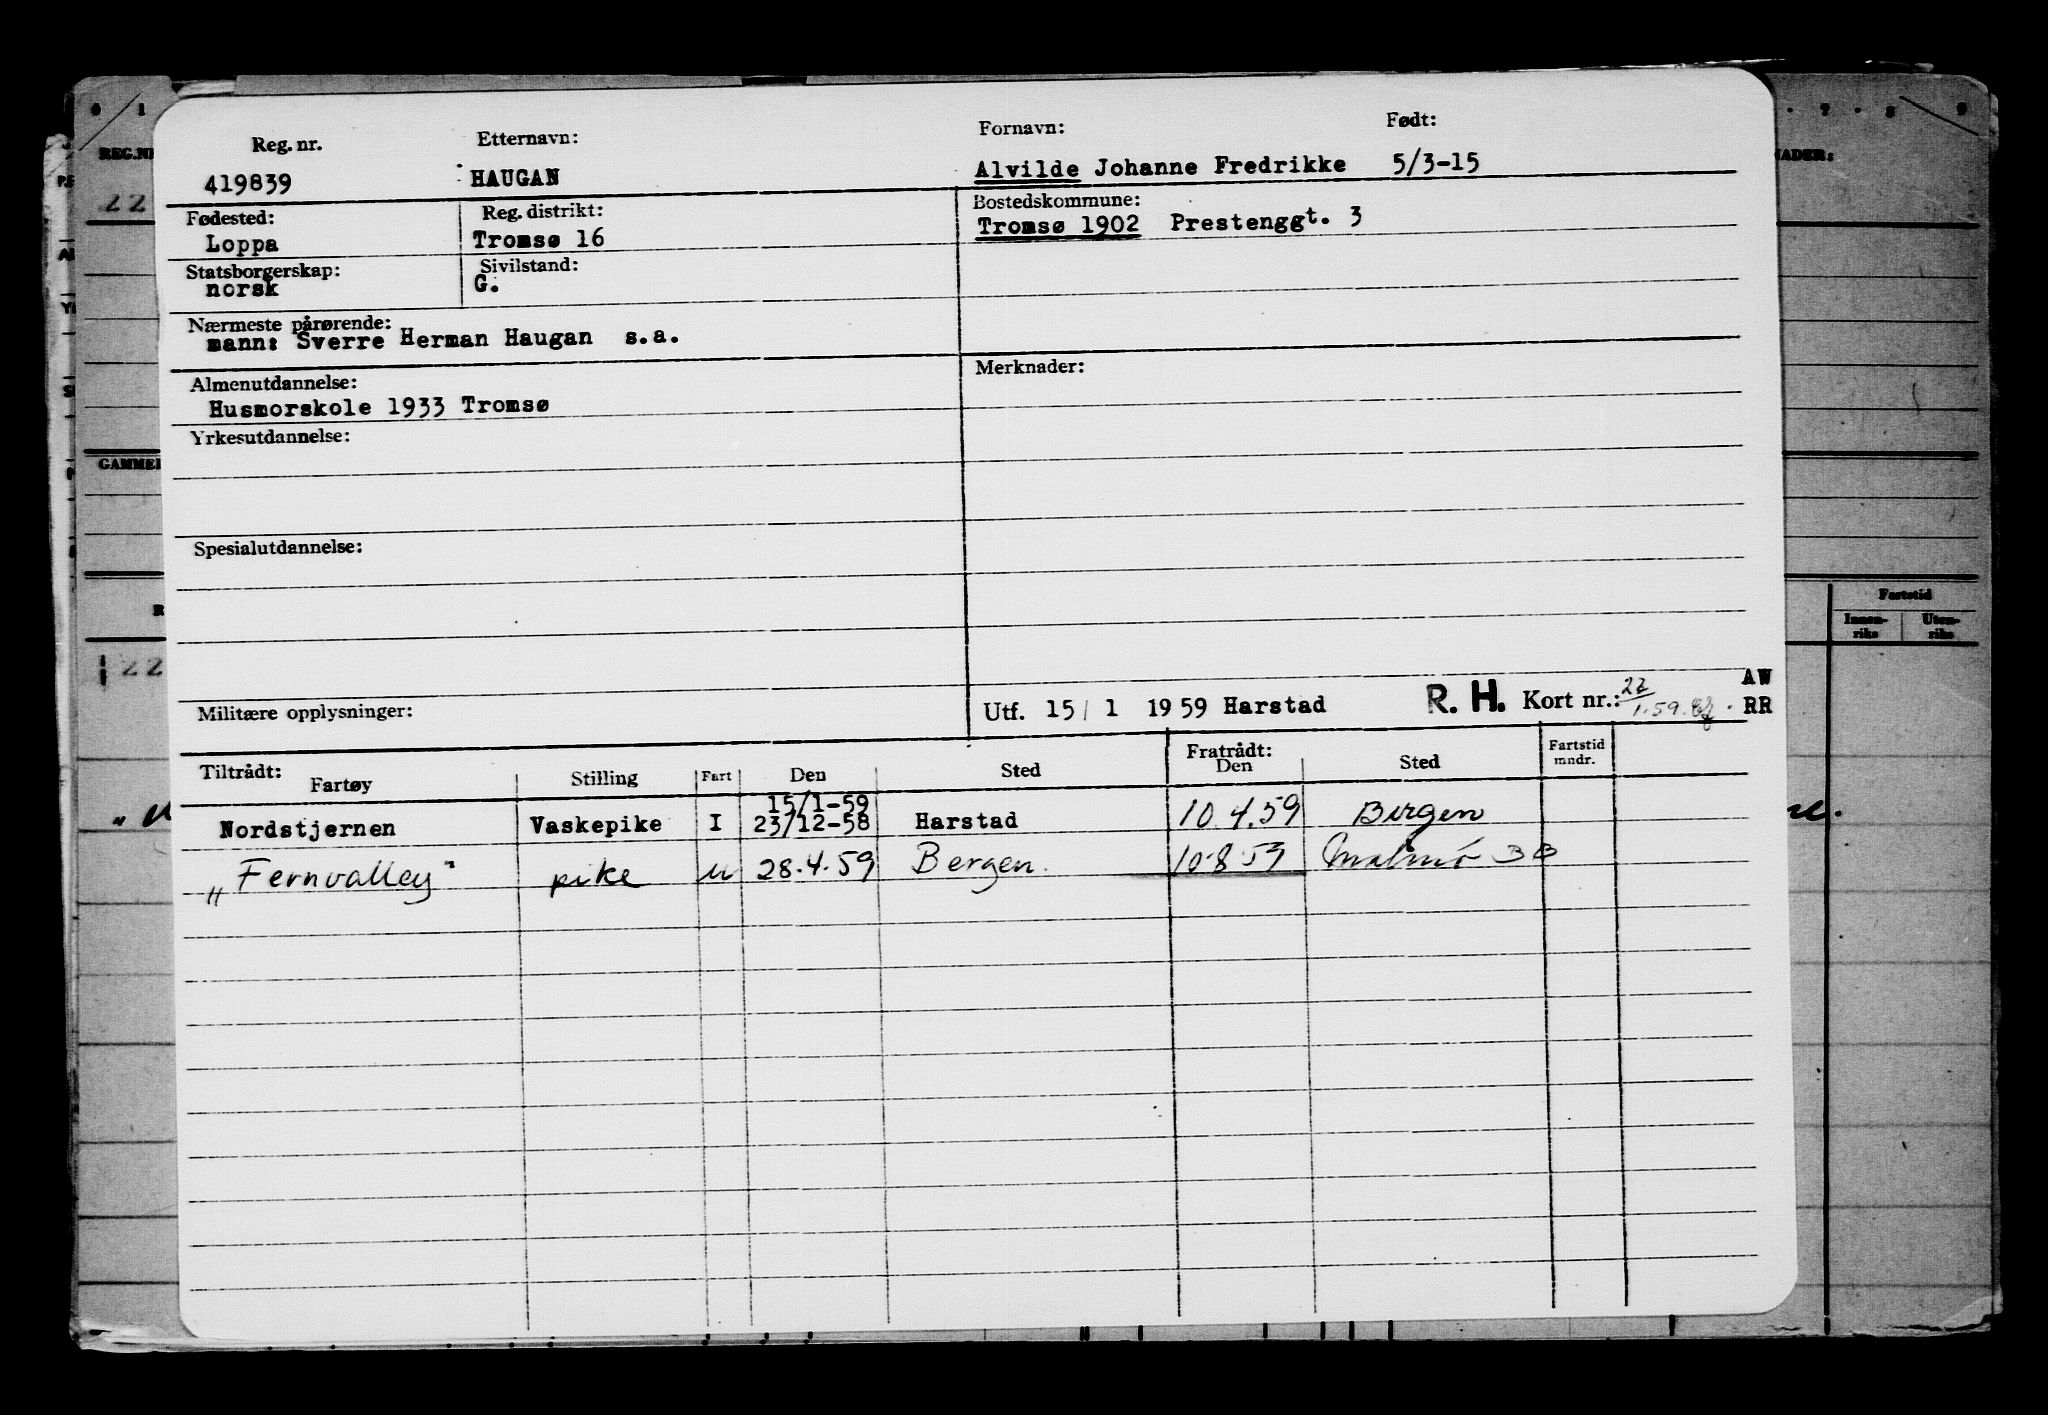 Reg. nr. Etternavn: Fornavn: Født:
419839 HAUGAN Alvilde Johanne Fredrikke 5/3-15
Fødested: Reg. distrikt: Bostedskommune:
Loppa Tromsø 16 Tromsø 1902 Prestenggt. 3
Statsborgerskap: Sivilstand:
norsk G.
Nærmeste pårørende:
mann: Sverre Herman Haugan s.a.
Almenutdannelse: Merknader:
Husmorskole 1933 Tromsø
Yrkesutdannelse:
Spesialutdannelse:
Militære opplysninger: Utf. 15/ 1 1959 Harstad R. H. Kort nr.: AW
RR
Tiltrådt: Fratrådt:
Fartøy Stilling Fart Den Sted Den Sted Fartstid mndr.
15/1-59
Nordstjernen Vaskepike I 23/12-58 Harstad 10.4.59 Bergen
"Fernvalley" pike u 28.4.59 Bergen. 10.8.59 Malmö
REG.NR
22
GAMMEL
22
Fartstid
Innen-riks Uten-riks